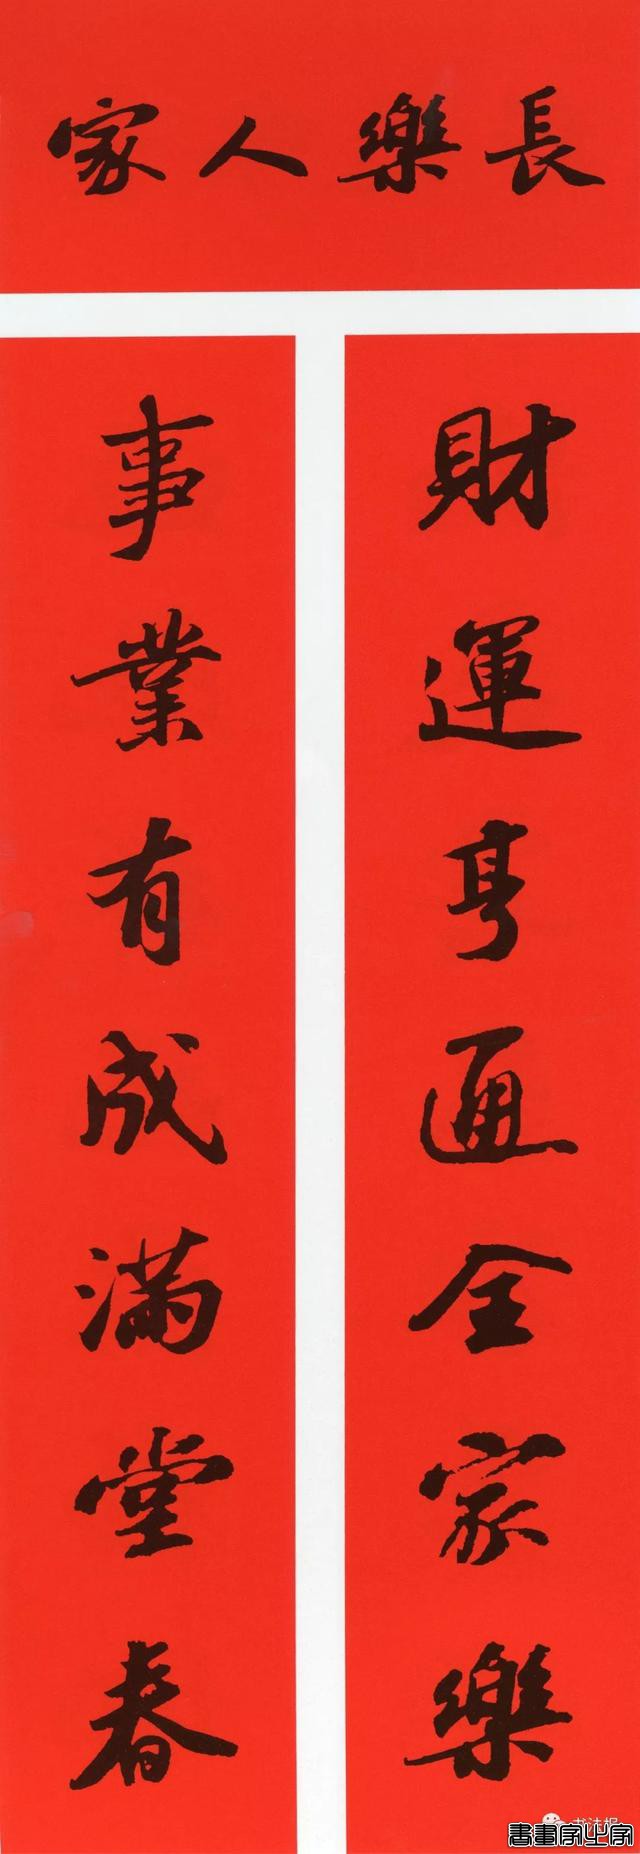 長樂人家
財運亨通全家樂
事業有成滿堂春
书法报
書畫家必字